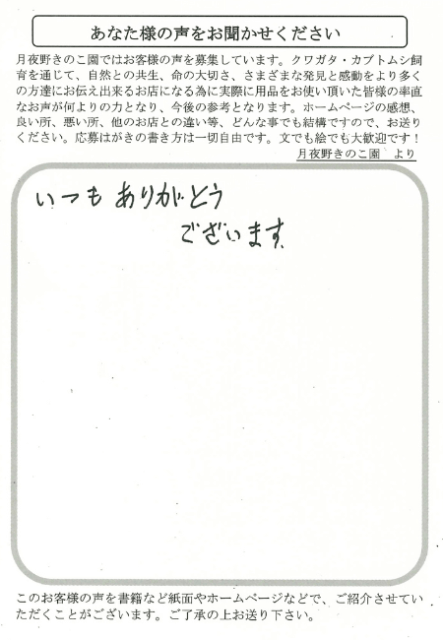 あなた様の声をお聞かせください
月夜野きのこ園ではお客様の声を募集しています。クワガタ・カブトムシ飼
育を通じて、自然との共生、命の大切さ、さまざまな発見と感動をより多く
の方達にお伝え出来るお店になる為に実際に用品をお使い頂いた皆様の率直
なお声が何よりの力となり、今後の参考となります。ホームページの感想、
良い所、悪い所、他のお店との違い等、どんな事でも結構ですので、お送り
ください。応募はがきの書き方は一切自由です。文でも絵でも大歓迎です！
月夜野きのこ園　より
いつもありがとう
ございます。
このお客様の声を書籍など紙面やホームページなどで、ご紹介させてい
ただくことがございます。ご了承の上お送り下さい。